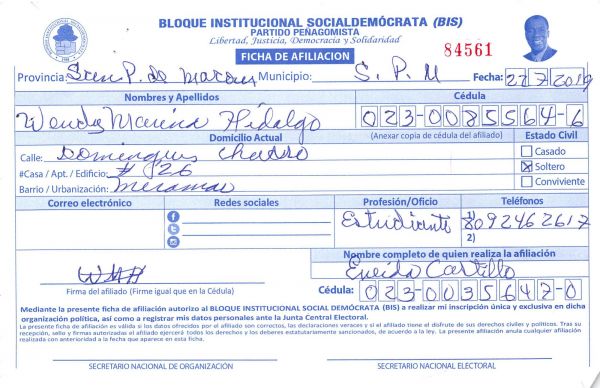 BLOQUE INSTITUCIONAL SOCIALDEMÓCRATA (BIS)
PARTIDO PEÑAGOMISTA
Libertad, Justicia, Democracia y Solidaridad
FICHA DE AFILIACION
84561
Provincia: San P. de Macoris Municipio: S. P. M Fecha: 22/7/2019
Nombres y Apellidos Cédula
Wendy Marina Hidalgo 023-0085564-6
Domicilio Actual (Anexar copia de cédula del afiliado) Estado Civil
Calle: Domingues Charro
Casado
#Casa / Apt. / Edificio: # 26
Soltero
Barrio / Urbanización: Miramar
Conviviente
Correo electrónico Redes sociales Profesión/Oficio Teléfonos
Estudiante 1) 8092462617
2)
Nombre completo de quien realiza la afiliación
Eneida Castillo
Firma del afiliado (Firme igual que en la Cédula)
Cédula: 023-0035647-0
Mediante la presente ficha de afiliación autorizo al BLOQUE INSTITUCIONAL SOCIAL DEMÓCRATA (BIS) a realizar mi inscripción única y exclusiva en dicha
organización política, así como a registrar mis datos personales ante la Junta Central Electoral.
La presente ficha de afiliación es válida si los datos ofrecidos por el afiliado son correctos, las declaraciones veraces y si el afiliado tiene el disfrute de sus derechos civiles y políticos. Tras su
recepción, sello y firmas autorizadas el afiliado ejercerá todos los derechos y los deberes estatutariamente sancionados, de acuerdo a la ley. La presente afiliación anula cualquier afiliación
realizada con anterioridad a la fecha que aparece en esta ficha.
SECRETARIO NACIONAL DE ORGANIZACIÓN SECRETARIO NACIONAL ELECTORAL